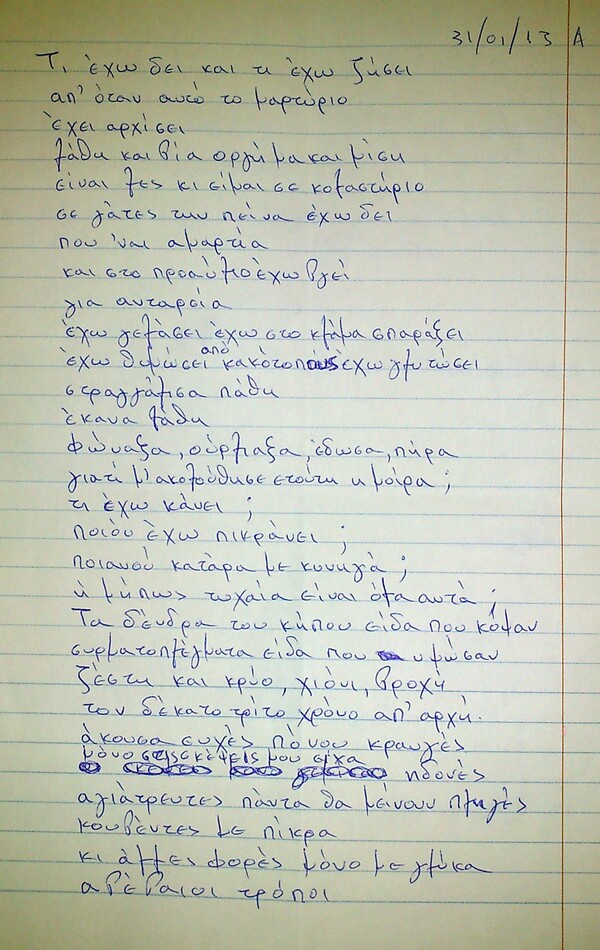 31/01/13 A
Τι έχω δει και τι έχω ζήσει
απ' όταν αυτό το μαρτύριο
έχει αρχίσει
λάθη και βία οργή μα και μίση
είναι λες κι είμαι σε κολαστήριο
σε γάτες την πείνα έχω δει
που 'ναι αμαρτία
και στο προαύλιο έχω βγει
για ανταρσία
έχω γελάσει έχω στο κλάμα σπαράξει
έχω θυμώσει από κακότοπους έχω γλυτώσει
στραγγάλισα πάθη
έκανα λάθη
φώναξα, ούρλιαξα, έδωσα, πήρα
γιατί μ' ακολούθησε ετούτη η μοίρα;
τι έχω κάνει;
ποιού έχω πικράνει;
ποιανού κατάρα με κυνηγά;
ή μήπως τυχαία είναι όλα αυτά;
Τα δένδρα του κήπου είδα που κόψαν
συρματοπλέγματα είδα που υψώσαν
ζέστη και κρύο, χιόνι, βροχή
τον δέκατο τρίτο χρόνο απ' αρχή.
άκουσα ευχές πόνου κραυγές
μόνο στις σκέψεις μου είχα
ηδονές
αγιάτρευτες πάντα θα μείνουν πληγές
κουβέντες με πίκρα
κι άλλες φορές μόνο με γλύκα
αβέβαιοι τρόποι